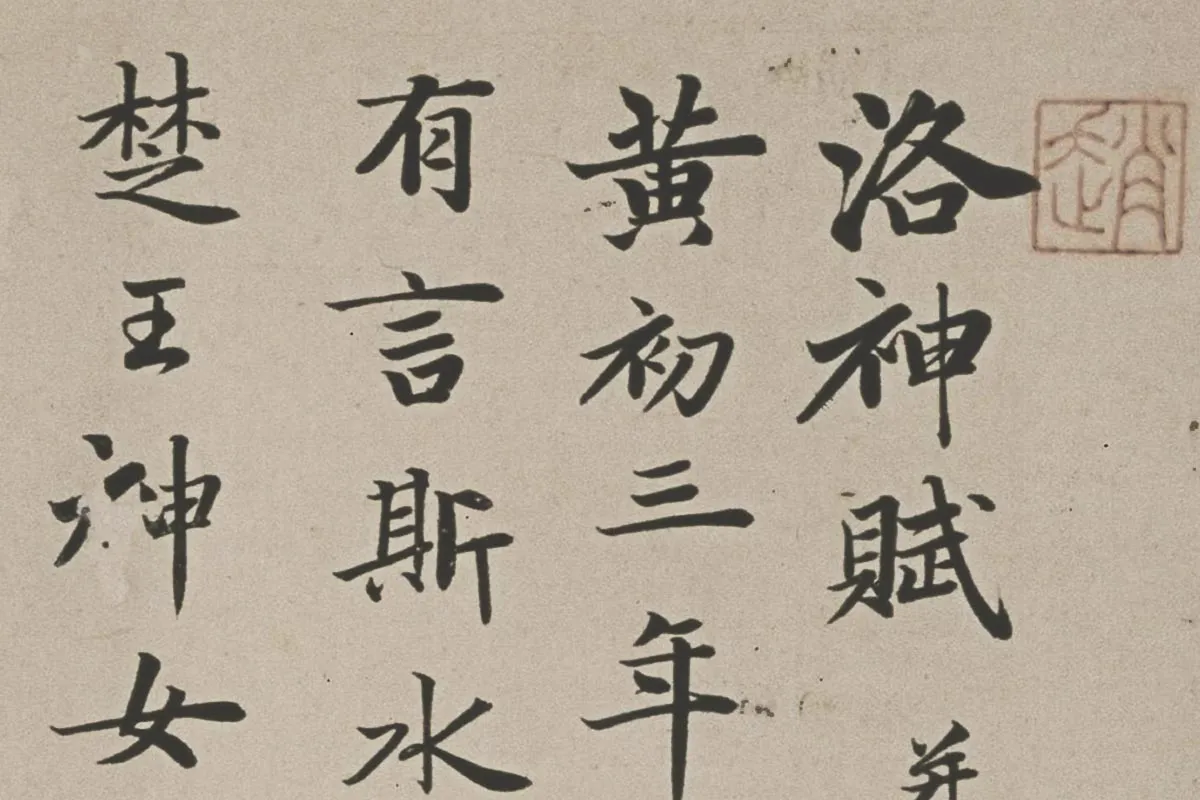 趙
洛神賦 并
黃初三年
有言斯水
楚王神女